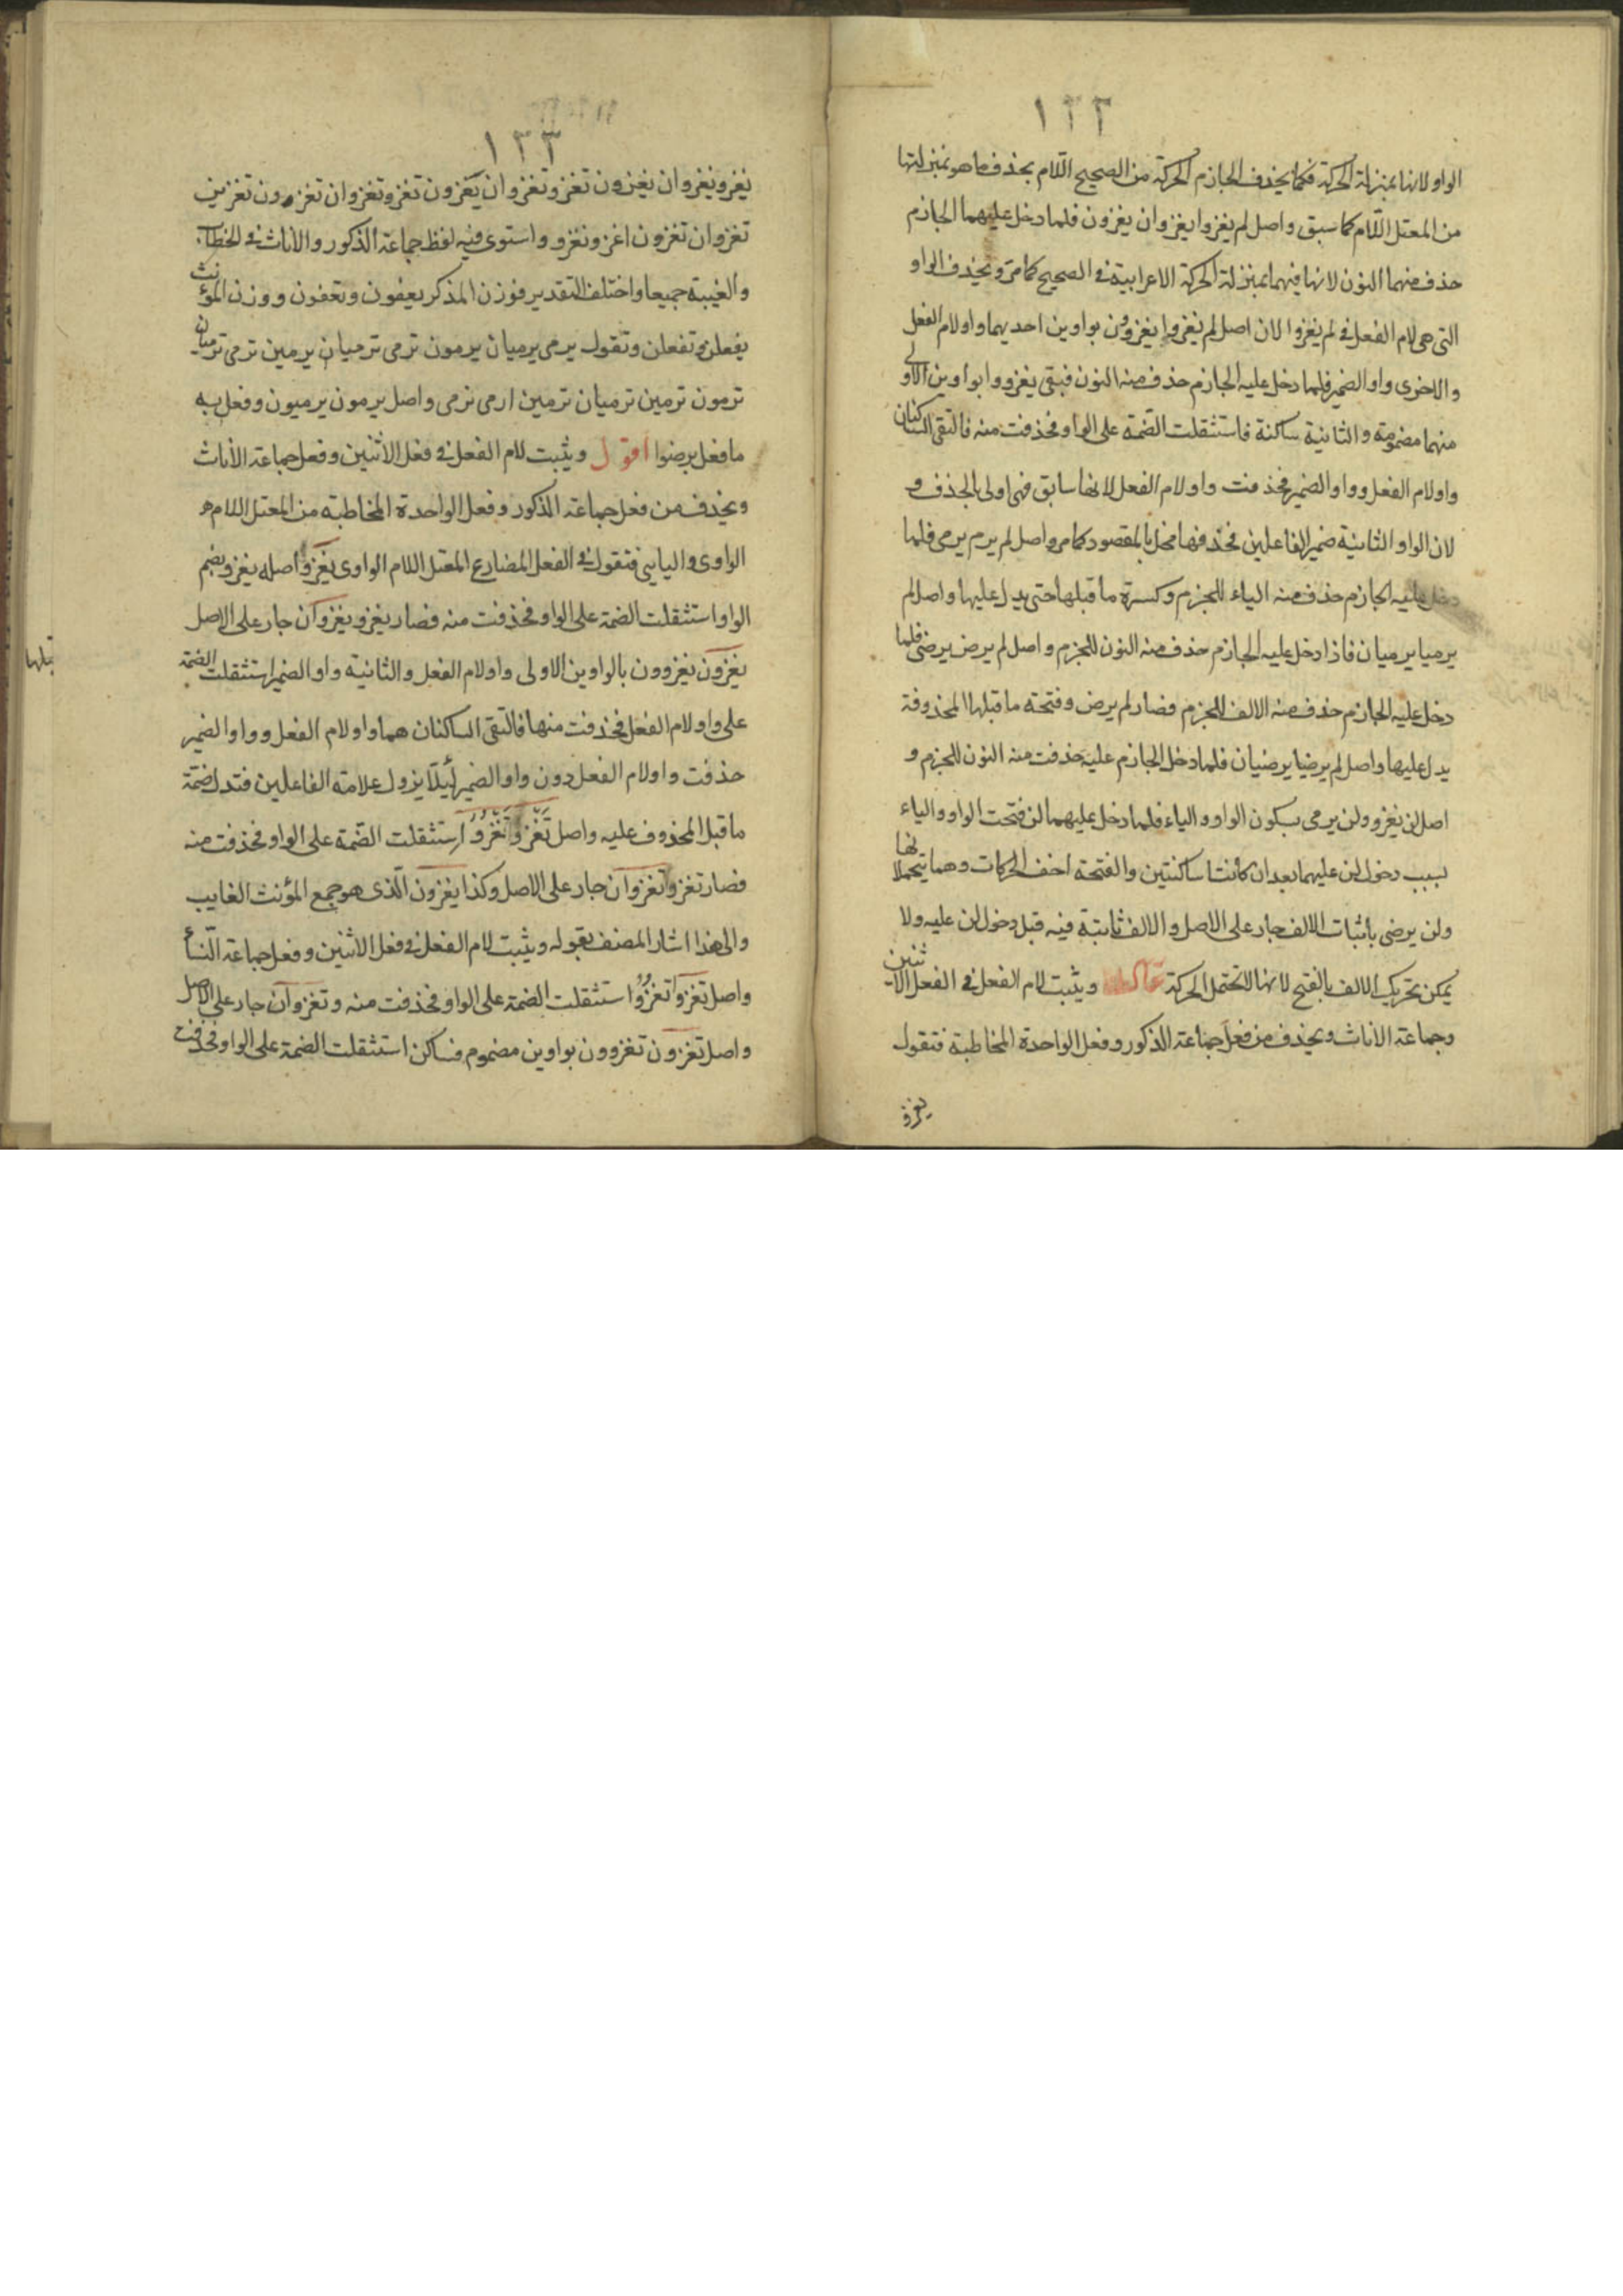 ١٣٢
الواو لانها بمنزلة الحركة فكما يحذف الجازم الحركة من الصحيح اللّام بحذف ما هو بمنزلتها
من المعتل اللّام كما سبق واصل لم يغزوا يغزوان يغزون فلما دخل عليهما الجازم
حذف منهما النون لانها فيهما بمنزلة الحركة الاعرابية في الصحيح كما مرّ ويحذف الواو
التى هى لام الفعل فى لم يغزوا لان اصل لم يغزوا يغزوون بواوين احديهما واو لام الفعل
والاخرى واو الضمير فلما دخل عليه الجازم حذف منه النون فبقى يغزووا بواوين الاولى
منهما مضمومة والثانية ساكنة فاستثقلت الضّمة على الواو فحذفت منه فالتقى الساكنان
واو لام الفعل وواو الضمير فحذفت واو لام الفعل لانها سابق فهى اولى بالحذف و
لان الواو الثانية ضمير الفاعلين فحذفها مخل بالمقصود كما مر واصل لم يرم يرمى فلما
دخل عليه الجازم حذف منه الياء للجزم وكسرة ما قبلها حتى يدل عليها واصل لم
يرميا يرميان فاذا دخل عليه الجازم حذف منه النون للجزم واصل لم يرض يرضى فلما
دخل عليه الجازم حذف منه الالف للجزم فصار لم يرض وفتحة ما قبلها المحذوفة
يدل عليها واصل لم يرضيا يرضيان فلما دخل الجازم عليه حذفت منه النون للجزم و
اصل لن يغزو ولن يرمى بسكون الواو والياء فلما دخل عليهما لن فتحت الواو والياء
بسبب دخول لن عليهما بعد ان كانتا ساكنتين والفتحة اخف الحركات وهما يتحملانها
ولن يرضى باثبات الالف جار على الاصل والالف ثابتة فيه قبل دخول لن عليه ولا
يمكن تحريك الالف بالفتح لانها لا تحتمل الحركة قال ويثبت لام الفعل فى الفعل الاثنين
وجماعة الاناث ويحذف من فعل جماعة الذكور وفعل الواحدة المخاطبة فتقول
يغزو
١٣٣
يغزو يغزوان يغزون تغزو تغزوان يغزون تغزو تغزوان تغزون تغزين
تغزوان تغزون اغزو نغزو واستوى فيه لفظ جماعة الذكور والاناث فى الخطاب
والغيبة جميعا واختلف التقدير فوزن المذكر يعفون وتعفون ووزن المؤنث
يفعلن وتفعلن وتقول يرمى يرميان يرمون ترمى ترميان يرمين ترمى ترميان
ترمون ترمين ترميان ترمين ارمى نرمى واصل يرمون يرميون وفعل به
ما فعل برضوا اقول ويثبت لام الفعل فى فعل الاثنين وفعل جماعة الاناث
ويحذف من فعل جماعة الذكور وفعل الواحدة المخاطبة من المعتل اللام
الواوى واليايى فتقول فى الفعل المضارع المعتل اللام الواوى يغزو اصله يغزو بضم
الواو استثقلت الضمة على الواو فحذفت منه فصار يغزو يغزوان جار على الاصل
يغزون يغزوون بالواوين الاولى واو لام الفعل والثانية واو الضمير استثقلت الضمة
على واو لام الفعل فحذفت منها فالتقى الساكنان هما واو لام الفعل وواو الضمير
حذفت واو لام الفعل دون واو الضمير لئيلّا يزول علامة الفاعلين فتدل ضمّة
ما قبل المحذوف عليه واصل تَغْزو تَغْزُوُ استثقلت الضّمة على الواو فحذفت منه
فصار تغزو تغزوان جار على الاصل وكذا يغزون الّذى هو جمع المؤنث الغايب
والى هذا اشار المصنف بقوله ويثبت لام الفعل فى فعل الاثنين وفعل جماعة النّسأ
واصل تغزو تغزوُ استثقلت الضمة على الواو فحذفت منه وتغزوان جار على الاصل
واصل تغزون تغزوون بواوين مضموم فساكن استثقلت الضمة على الواو فحذفت